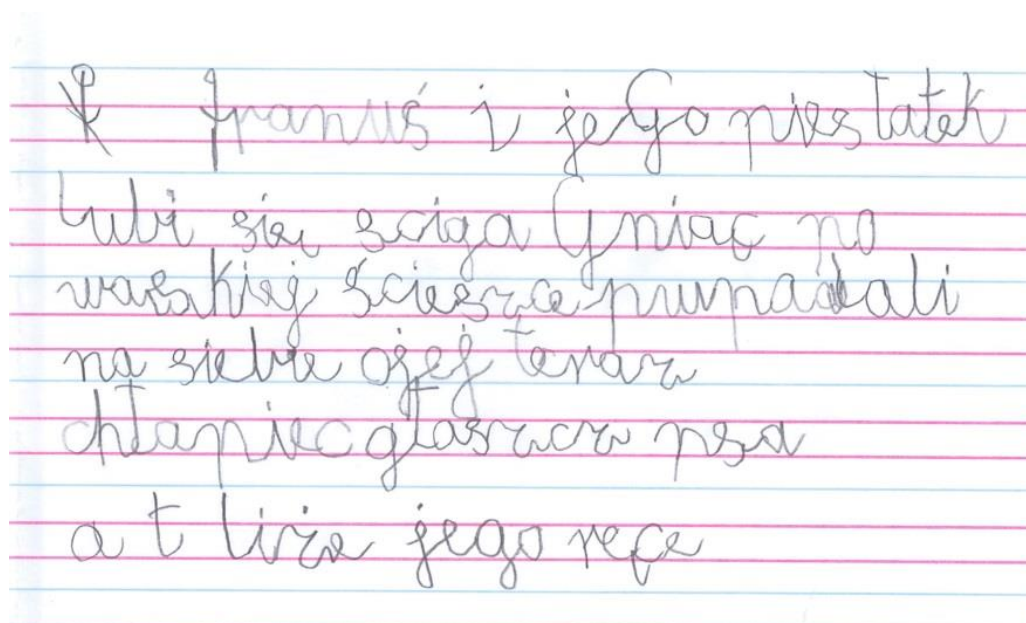 Franuś i jeGo pies Tatek
lubi się sciga Gniąc na
warskiej ściesrce pwpadali
na siebie ojej teraz
chłapiec głaszcze psa
a t liże jego ręce